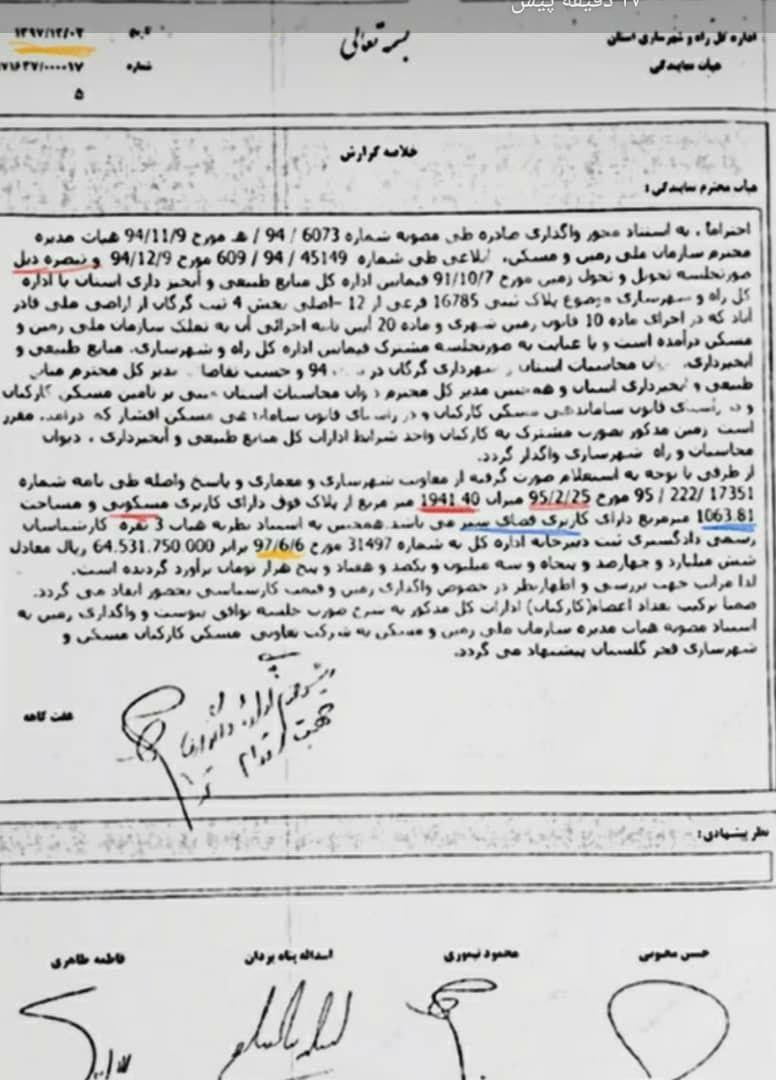 ۱۷ دقیقه پیش
اداره کل راه و شهرسازی استان
هیأت نمایندگی
بسمه تعالی
تاریخ ۱۳۹۷/۱۲/۰۲
شماره ۷۱۶۳۷/۰۰۰۰۱۷
۵
خلاصه گزارش
هیأت محترم نمایندگی :
احتراما ، به استناد مجوز واگذاری صادره طی مصوبه شماره 6073 / 94 / هـ مورخ 94/11/9 هیات مدیره
محترم سازمان ملی زمین و مسکن، ابلاغی طی شماره 45149 / 94 / 609 مورخ 94/12/9 و تبصره ذیل
صورتجلسه تحویل و تحول زمین مورخ 91/10/7 فیمابین اداره کل منابع طبیعی و آبخیز داری استان با اداره
کل راه و شهرسازی موضوع پلاک ثبتی 16785 فرعی از 12 -اصلی بخش 4 ثبت گرگان از اراضی ملی قادر
آباد که در اجرای ماده 10 قانون زمین شهری و ماده 20 آیین نامه اجرائی آن به تملک سازمان ملی زمین و
مسکن درآمده است و با عنایت به صورتجلسه مشترک فیمابین اداره کل راه و شهرسازی، منابع طبیعی و
آبخیزداری، محاسبات استان شهرداری گرگان در 94 و حسب تقاضا مدیر کل محترم منابع
طبیعی و آبخیزداری استان و همچنین مدیر کل محترم دیوان محاسبات استان مبنی بر تامین مسکن کارکنان
و در راستای قانون ساماندهی مسکن کارکنان و در راستای قانون ساماندهی مسکن اقشار کم درآمد، مقرر
است زمین مذکور بصورت مشترک به کارکنان واجد شرایط ادارات کل منابع طبیعی و آبخیزداری ، دیوان
محاسبات و راه شهرسازی واگذار گردد.
از طرفی با توجه به استعلام صورت گرفته از معاونت شهرسازی و معماری و پاسخ واصله طی نامه شماره
17351 / 222/ 95 مورخ 95/2/25 میزان 1941.40 متر مربع از پلاک فوق دارای کاربری مسکونی و مساحت
1063.81 مترمربع دارای کاربری فضای سبز می باشد. همچنین به استناد نظریه هیات 3 نفره کارشناسان
رسمی دادگستری ثبت دبیرخانه اداره کل به شماره 31497 مورخ 97/6/6 برابر 64.531.750.000 ریال معادل
شش میلیارد و چهارصد و پنجاه و سه میلیون و یکصد و هفتاد و پنج هزار تومان برآورد گردیده است.
لذا مراتب جهت بررسی و اظهارنظر در خصوص واگذاری زمین و قیمت کارشناسی بحضور ایفاد می گردد.
ضمنا ترکیب تعداد اعضاء(کارکنان) ادارات کل مذکور به شرح صورت جلسه توافق پیوست و واگذاری زمین به
استناد مصوبه هیات مدیره سازمان ملی زمین و مسکن به شرکت تعاونی مسکن کارکنان مسکن و
شهرسازی فجر گلستان پیشنهاد می گردد.
عفت کاهه
جهت اقدام
نظر پیشنهادی:
حسن محبوبی
محمود تیموری
اسداله پناه یزدان
فاطمه طاهری